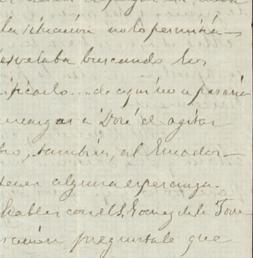 la situacion no lo permitia —
esvelaba buscando los
ificarlo... de cq uino a pararia
encargar a Doré el agitar
tro, tambien, al Senador —
tener alguna esperanza.
hablar con el S. Gomez de la Torr
racion preguntale que